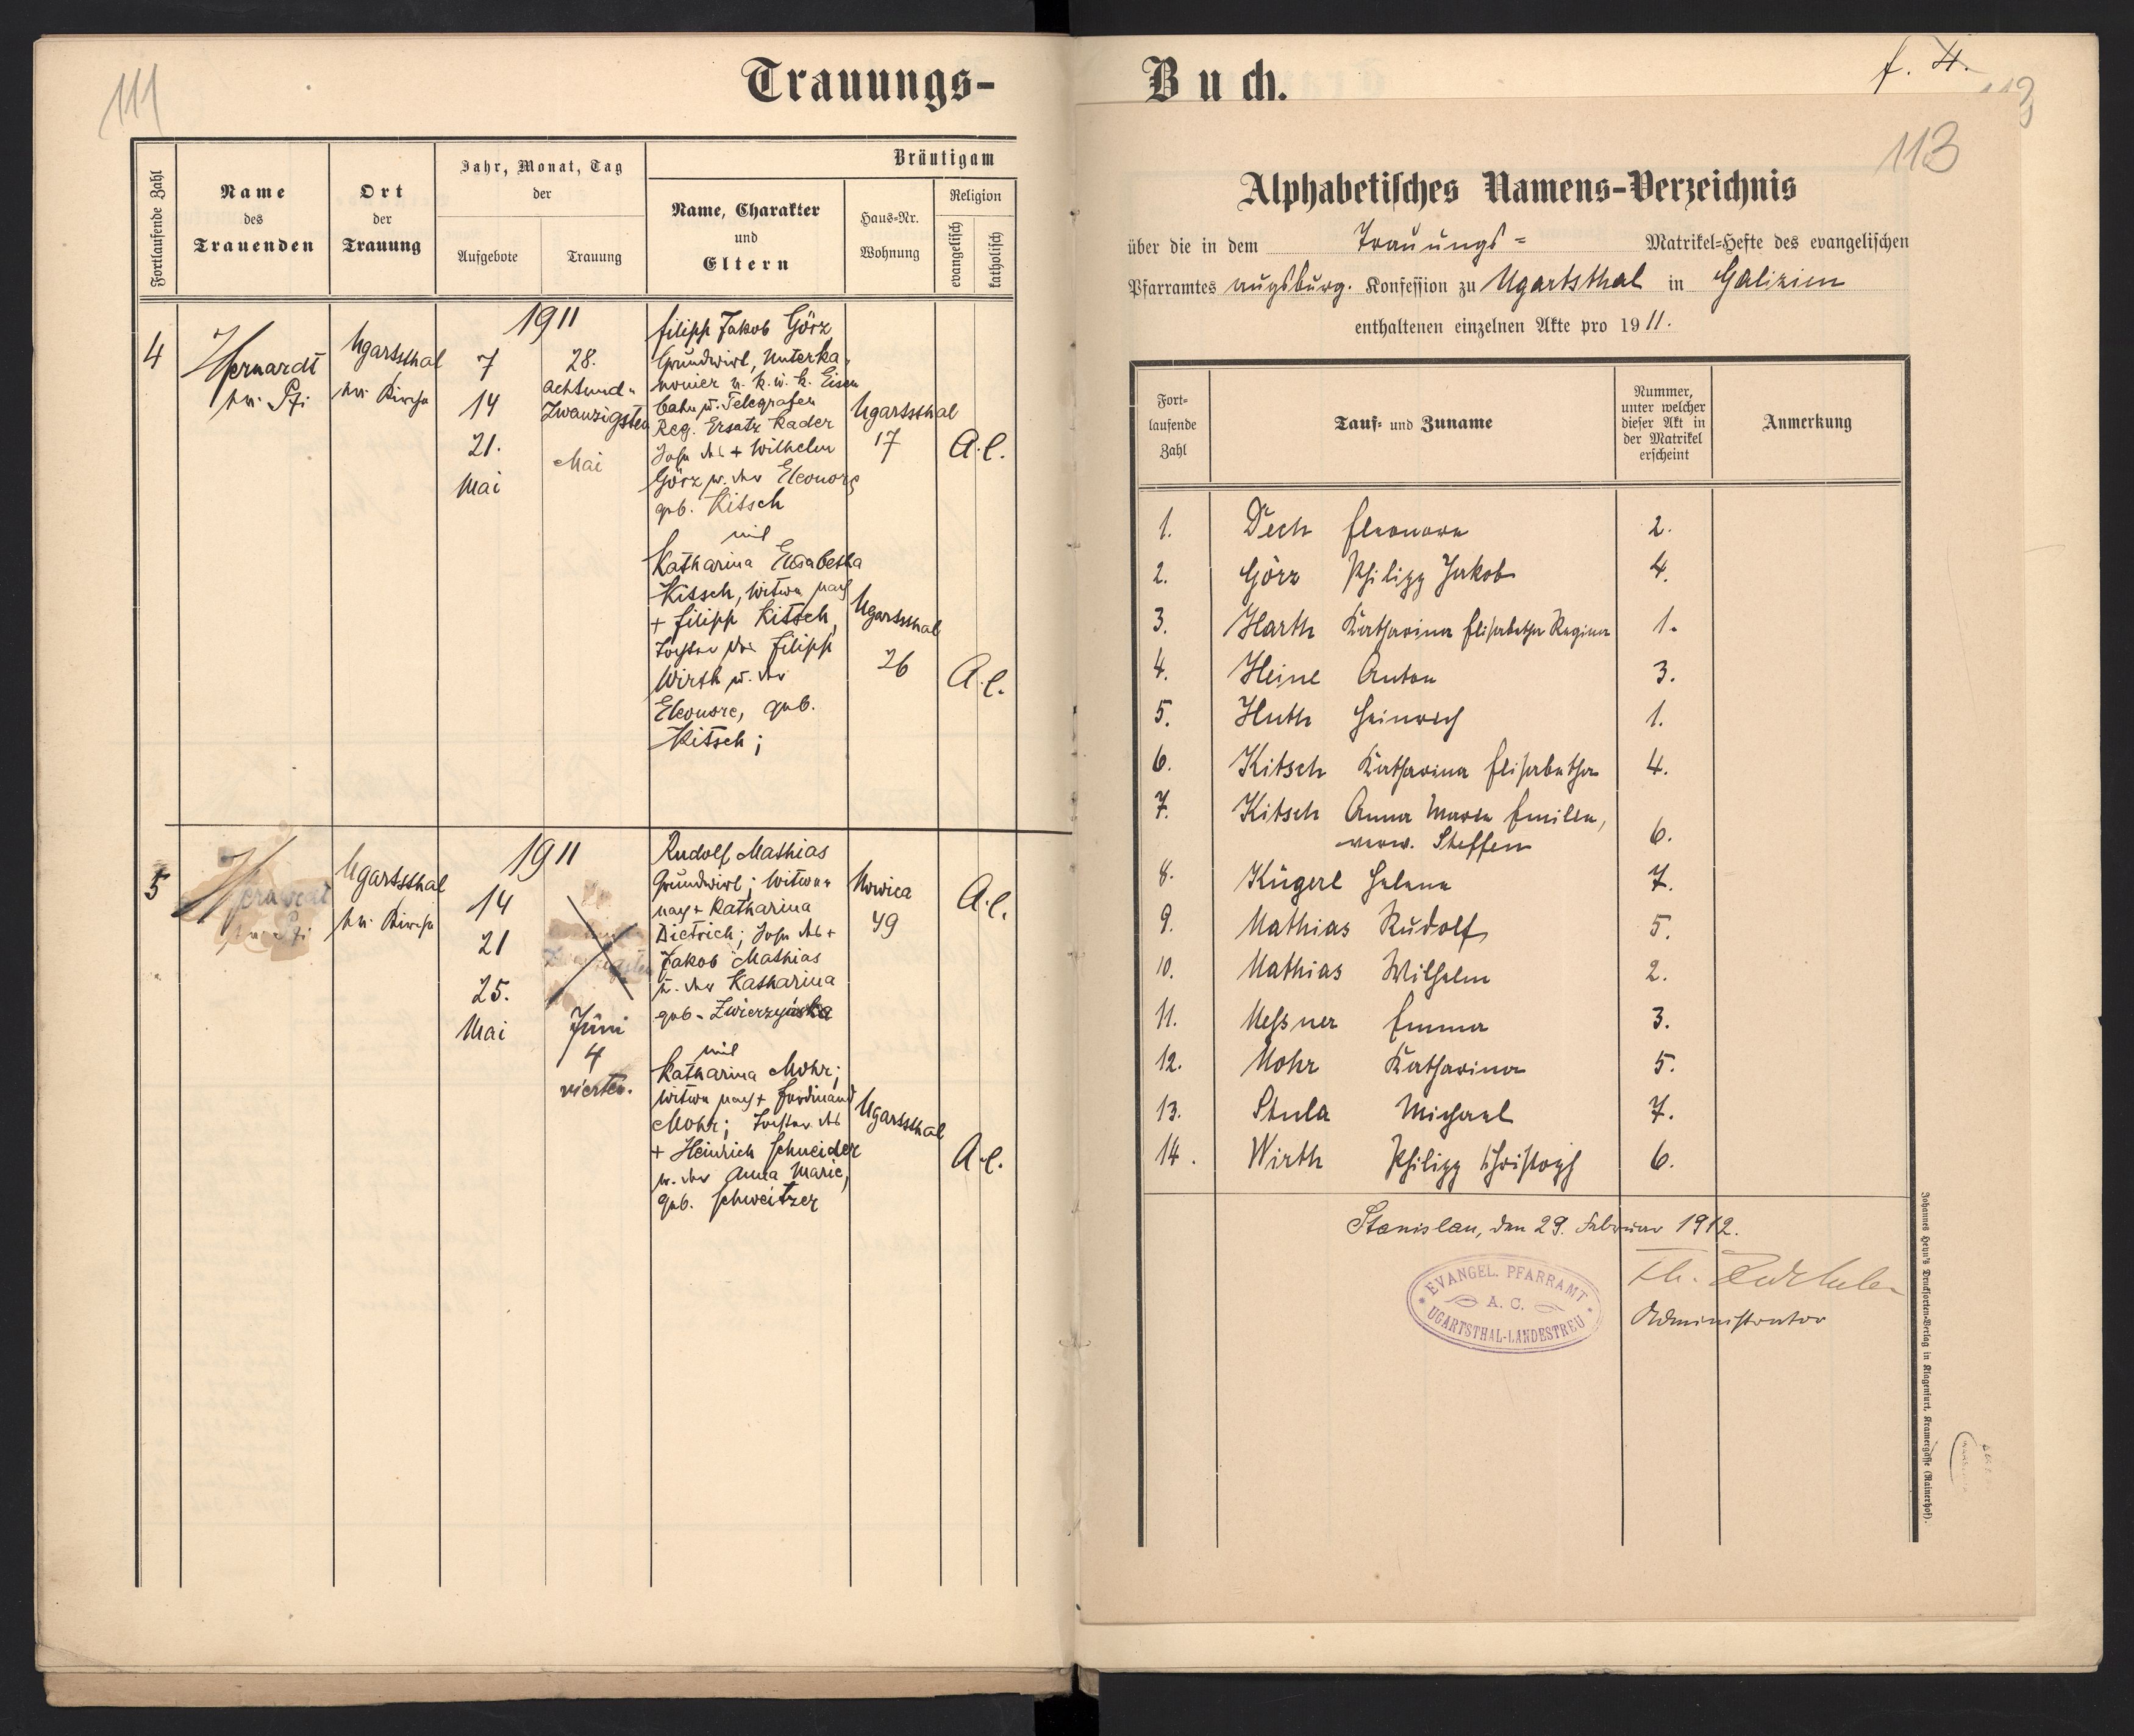 111
Trauungs-
Fortlaufende Zahl
Name
des
Trauenden
Ort
der
Trauung
Jahr, Monat, Tag
der
Aufgebote
Trauung
Bräutigam
Name, Charakter
und
Eltern
Haus-Nr.
Wohnung
Religion
evangelisch
katholisch
4
Ugartsthal
1911
7
14
21.
Mai
28.
Achtund-
Zwanzigsten
Mai
Filipp Jakob Görz
Grundwirt, Unterka-
nonier u. k. u. k. Eisen
bahn u. Telegrafen
Reg. Ersatz Kader
Sohn des + Wilhelm
Görz u. der Eleonore
geb. Kitsch
mit
Katharina Elisabetha
Kitsch, Witwe nach
+ Filipp Kitsch,
Tochter des Filipp
Wirth u. der
Eleonore, geb.
Kitsch;
Ugartsthal
17
A.C.
Ugartsthal
26
A.C.
5
Ugartsthal
1911
14
21
25.
Mai
Juni
4
vierten.
Rudolf Mathias
Grundwirt; Witwer
nach + Katharina
Dietrich; Sohn des +
Jakob Mathias
u. der Katharina
geb. Zwierzyńska
mit
Katharina Mohr;
Witwe nach + Ferdinand
Mohr; Tochter des
+ Heinrich Schneider
u. der Anna Marie,
geb. Schweitzer
Nowica
49
A.C.
Ugartsthal
A.C.
Buch.
f. 4.
113
113
Alphabetisches Namens-Verzeichnis
über die in dem Trauungs- Matrikel-Hefte des evangelischen
Pfarramtes augsburg. Konfession zu Ugartsthal in Galizien
enthaltenen einzelnen Akte pro 1911.
Fort-
laufende
Zahl
Tauf- und Zuname
Nummer,
unter welcher
dieser Akt in
der Matrikel
erscheint
Anmerkung
1. Dech Eleonore 2.
2. Görz Philipp Jakob 4.
3. Harth Katharina Elisabetha Regina 1.
4. Heine Anton 3.
5. Huth Heinrich 1.
6. Kitsch Katharina Elisabetha 4.
7. Kitsch Anna Maria Emilia,
verw. Steffen 6.
8. Kügerl Helene 7.
9. Mathias Rudolf 5.
10. Mathias Wilhelm 2.
11. Meßner Emma 3.
12. Mohr Katharina 5.
13. Stula Michael 7.
14. Wirth Philipp Christoph 6.
Stanislau, den 29. Februar 1912.
EVANGEL. PFARRAMT
A. C.
UGARTSTHAL-LANDESTREU
Administrator
Johannes Heyn's Drucksorten-Verlag in Klagenfurt, Kramergasse (Rainerhof).